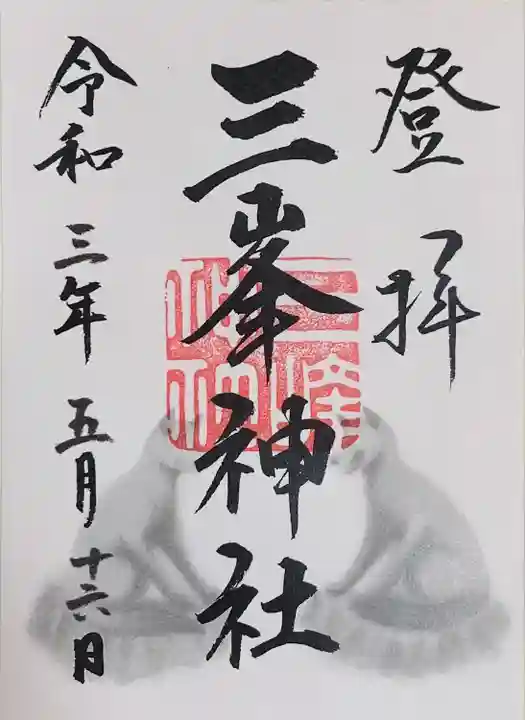 登拝
三峯神社
令和三年五月十六日